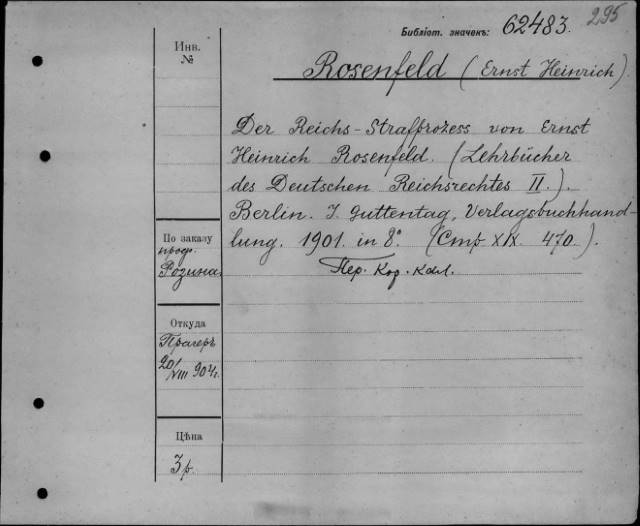 295
Библіот. значекъ: 62483.
Инв.
№
Rosenfeld (Ernst Heinrich).
Der Reichs-Strafprozess von Ernst
Heinrich Rosenfeld. (Lehrbücher
des Deutschen Reichsrechtes II.).
Berlin. J. Guttentag, Verlagsbuchhand-
lung. 1901. in 8°. (Стр. XIX. 470.).
Пер. Кор. Кал.
По заказу
проф.
Розина.
Откуда
Прагеръ
20/VIII 902 г.
Цѣна
3 р.